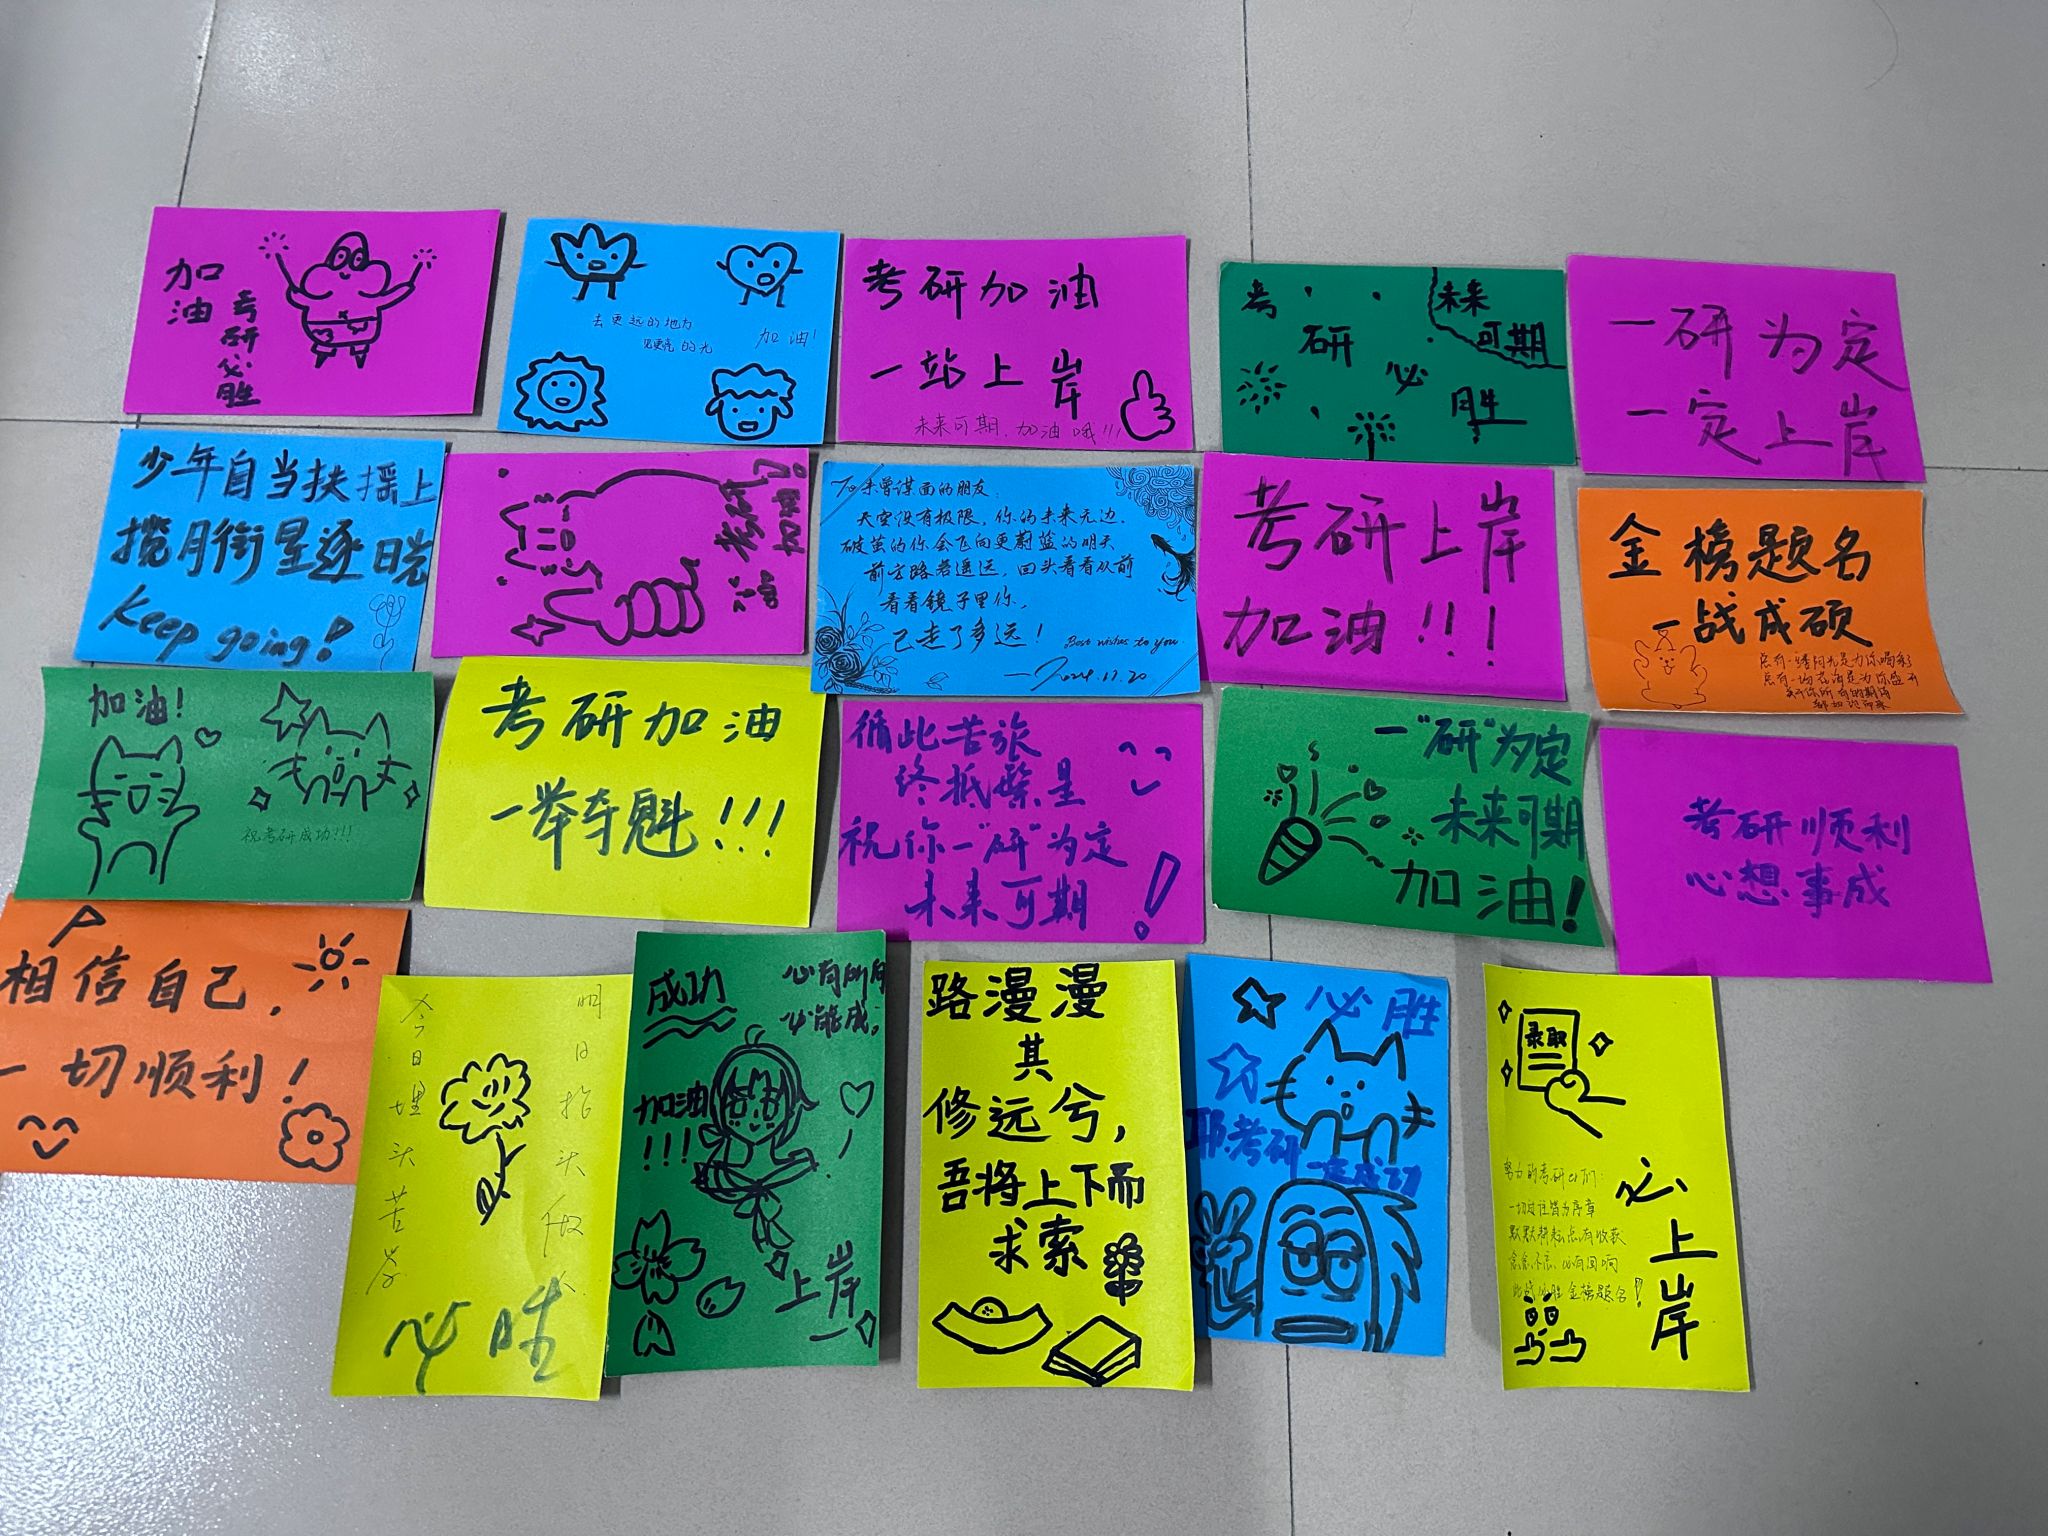 加油
考研必胜
去更远的地方
见更亮的光
加油!
考研加油
一站上岸
未来可期,加油哦!!!
考研必胜
未来可期
一研为定
一定上岸
少年自当扶摇上
揽月衔星逐日光
Keep going!
考研
加油!
To未曾谋面的朋友:
天空没有极限,你的未来无边.
破茧的你会飞向更蔚蓝的明天
前方路若遥远,回头看看从前
看看镜子里你,
已走了多远!
Best wishes to you
—2024.12.20
考研上岸
加油!!!
金榜题名
一战成硕
总有一缕阳光是为你喝彩
总有一场花海是为你盛开
关于你所有的期待
都如约而来
加油!
祝考研成功!!!
考研加油
一举夺魁!!!
循此苦旅
终抵繁星
祝你一“研”为定
未来可期!
一“研”为定
未来可期
加油!
考研顺利
心想事成
相信自己,
一切顺利!
今日埋头苦学
明日抬头做人
必胜
成功
心有所
必能成;
加油
!!!
上岸
路漫漫
其
修远兮,
吾将上下而
求索
必胜
考研
一定成功
录取
努力的考研er们:
一切过往皆为序章
默默耕耘总有收获
念念不忘 必有回响
此战必胜 金榜题名!
必上岸